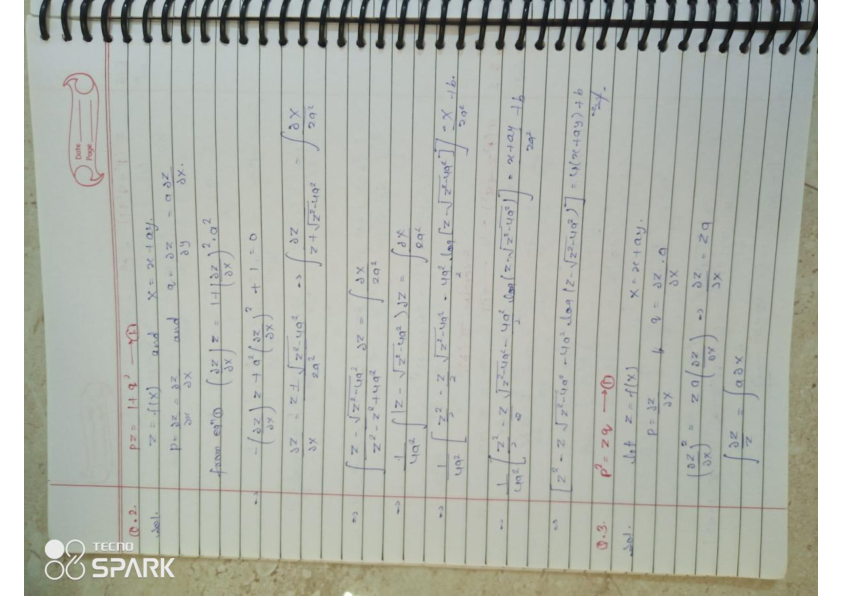 Date
Page
Q.2. pz = 1+q² —①
Sol. z = f(X) and X = x+ay.
p = ∂z/∂x = ∂z/∂X and q = ∂z/∂y = a ∂z/∂X.
from eqⁿ ① (∂z/∂X) z = 1+(∂z/∂X)²·a²
⇒ -(∂z/∂X) z + a² (∂z/∂X)² + 1 = 0
∂z/∂X = z ± √z²-4a² / 2a² ⇒ ∫ ∂z / z+√z²-4a² = ∫ ∂X / 2a²
⇒ ∫ z - √z²-4a² / z²-z²+4a² ∂z = ∫ ∂X / 2a²
⇒ 1/4a² ∫ (z-√z²-4a²) ∂z = ∫ ∂X / 2a²
1/4a² [z²/2 - z/2 √z²-4a² - 4a²/2 log [z-√z²-4a²]] = X/2a² + b.
⇒ 1/4a² [z²/2 - z/2 √z²-4a² - 4a²/2 log[z-√z²-4a²]] = x+ay/2a² + b
⇒ [z² - z √z²-4a² - 4a² log [z-√z²-4a²]] = 4(x+ay)+b
Q.3. p² = zq —①
Sol. let z = f(X) X = x+ay.
p = ∂z/∂X & q = ∂z/∂X · a
(∂z/∂X)² = z a (∂z/∂X) ⇒ ∂z/∂X = za
∫ ∂z/z = ∫ a∂X
TECNO
SPARK